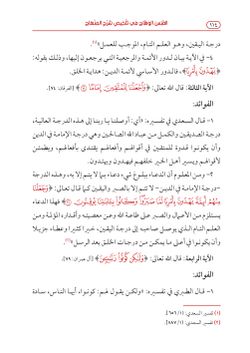 ١١٤
القبس الوهاج في تلخيص شرح المنهاج
درجة اليقين، وهو العلم التام، الموجب للعمل»(١).
٤- في الآية بيان لدور الأئمة والمرجعية التي يرجعون إليها، وذلك بقوله:
﴿يَهْدُونَ بِأَمْرِنَا﴾، فالدور الأساسي لأئمة الدين: هداية الخلق.
الآية الثالثة: قال الله تعالى: ﴿وَاجْعَلْنَا لِلْمُتَّقِينَ إِمَامًا﴾ [الفرقان: ٧٤].
الفوائد:
١- قال السعدي في تفسيره: «أي: أوصلنا يا ربنا إلى هذه الدرجة العالية،
درجة الصديقين والكمل من عباد الله الصالحين وهي درجة الإمامة في الدين
وأن يكونوا قدوة للمتقين في أقوالهم وأفعالهم يقتدى بأفعالهم، ويطمئن
لأقوالهم ويسير أهل الخير خلفهم فيهدون ويهتدون.
٢- ومن المعلوم أن الدعاء ببلوغ شيء، دعاء بما لا يتم إلا به، وهذه الدرجة
-درجة الإمامة في الدين- لا تتم إلا بالصبر واليقين كما قال تعالى: ﴿وَجَعَلْنَا
مِنْهُمْ أَئِمَّةً يَهْدُونَ بِأَمْرِنَا لَمَّا صَبَرُوا وَكَانُوا بِآيَاتِنَا يُوقِنُونَ﴾ فهذا الدعاء،
يستلزم من الأعمال والصبر على طاعة الله وعن معصيته وأقداره المؤلمة ومن
العلم التام الذي يوصل صاحبه إلى درجة اليقين، خيرا كثيرا وعطاء جزيلا
وأن يكونوا في أعلى ما يمكن من درجات الخلق بعد الرسل»(٢).
الآية الرابعة: قال الله تعالى: ﴿وَلَكِنْ كُونُوا رَبَّانِيِّينَ﴾ [آل عمران: ٧٩].
الفوائد:
١- قال الطبري في تفسيره: «ولكن يقول لهم: كونوا، أيها الناس، سادة
(١) تفسير السعدي:
(٢) تفسير السعدي: